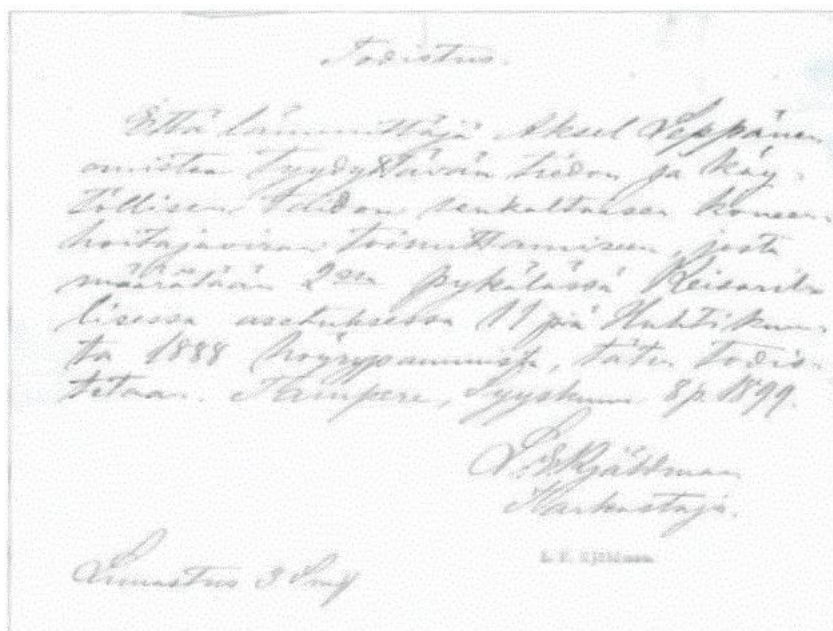 Todistus.
Että lämmittäjä Aksel Seppänen
omistaa tyydyttävän tiedon ja käy-
töllisen taidon senkaltaisen koneen-
hoitajaviran toimittamiseen, josta
määrätään 2:sen pykälässä Keisaril-
lisessa asetuksessa 11 p:nä Huhtikuu-
ta 1888 höyrypannuista, täten todis-
tetaan. Tampere, Syyskuun 8 p. 1899.
Tarkastaja.
Lunastus 3 Smk